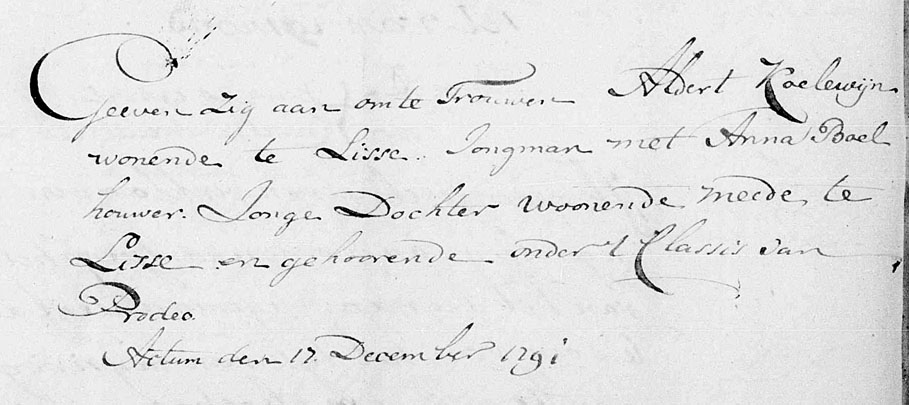 Geeven zig aan om te Trouwen Aldert Koelewijn
wonende te Lisse. Jongman met Anna Boel
houwer. Jonge Dochter woonende meede te
Lisse en gehoorende onder 't Classis van
Prodeo.
Actum den 17 December 1791